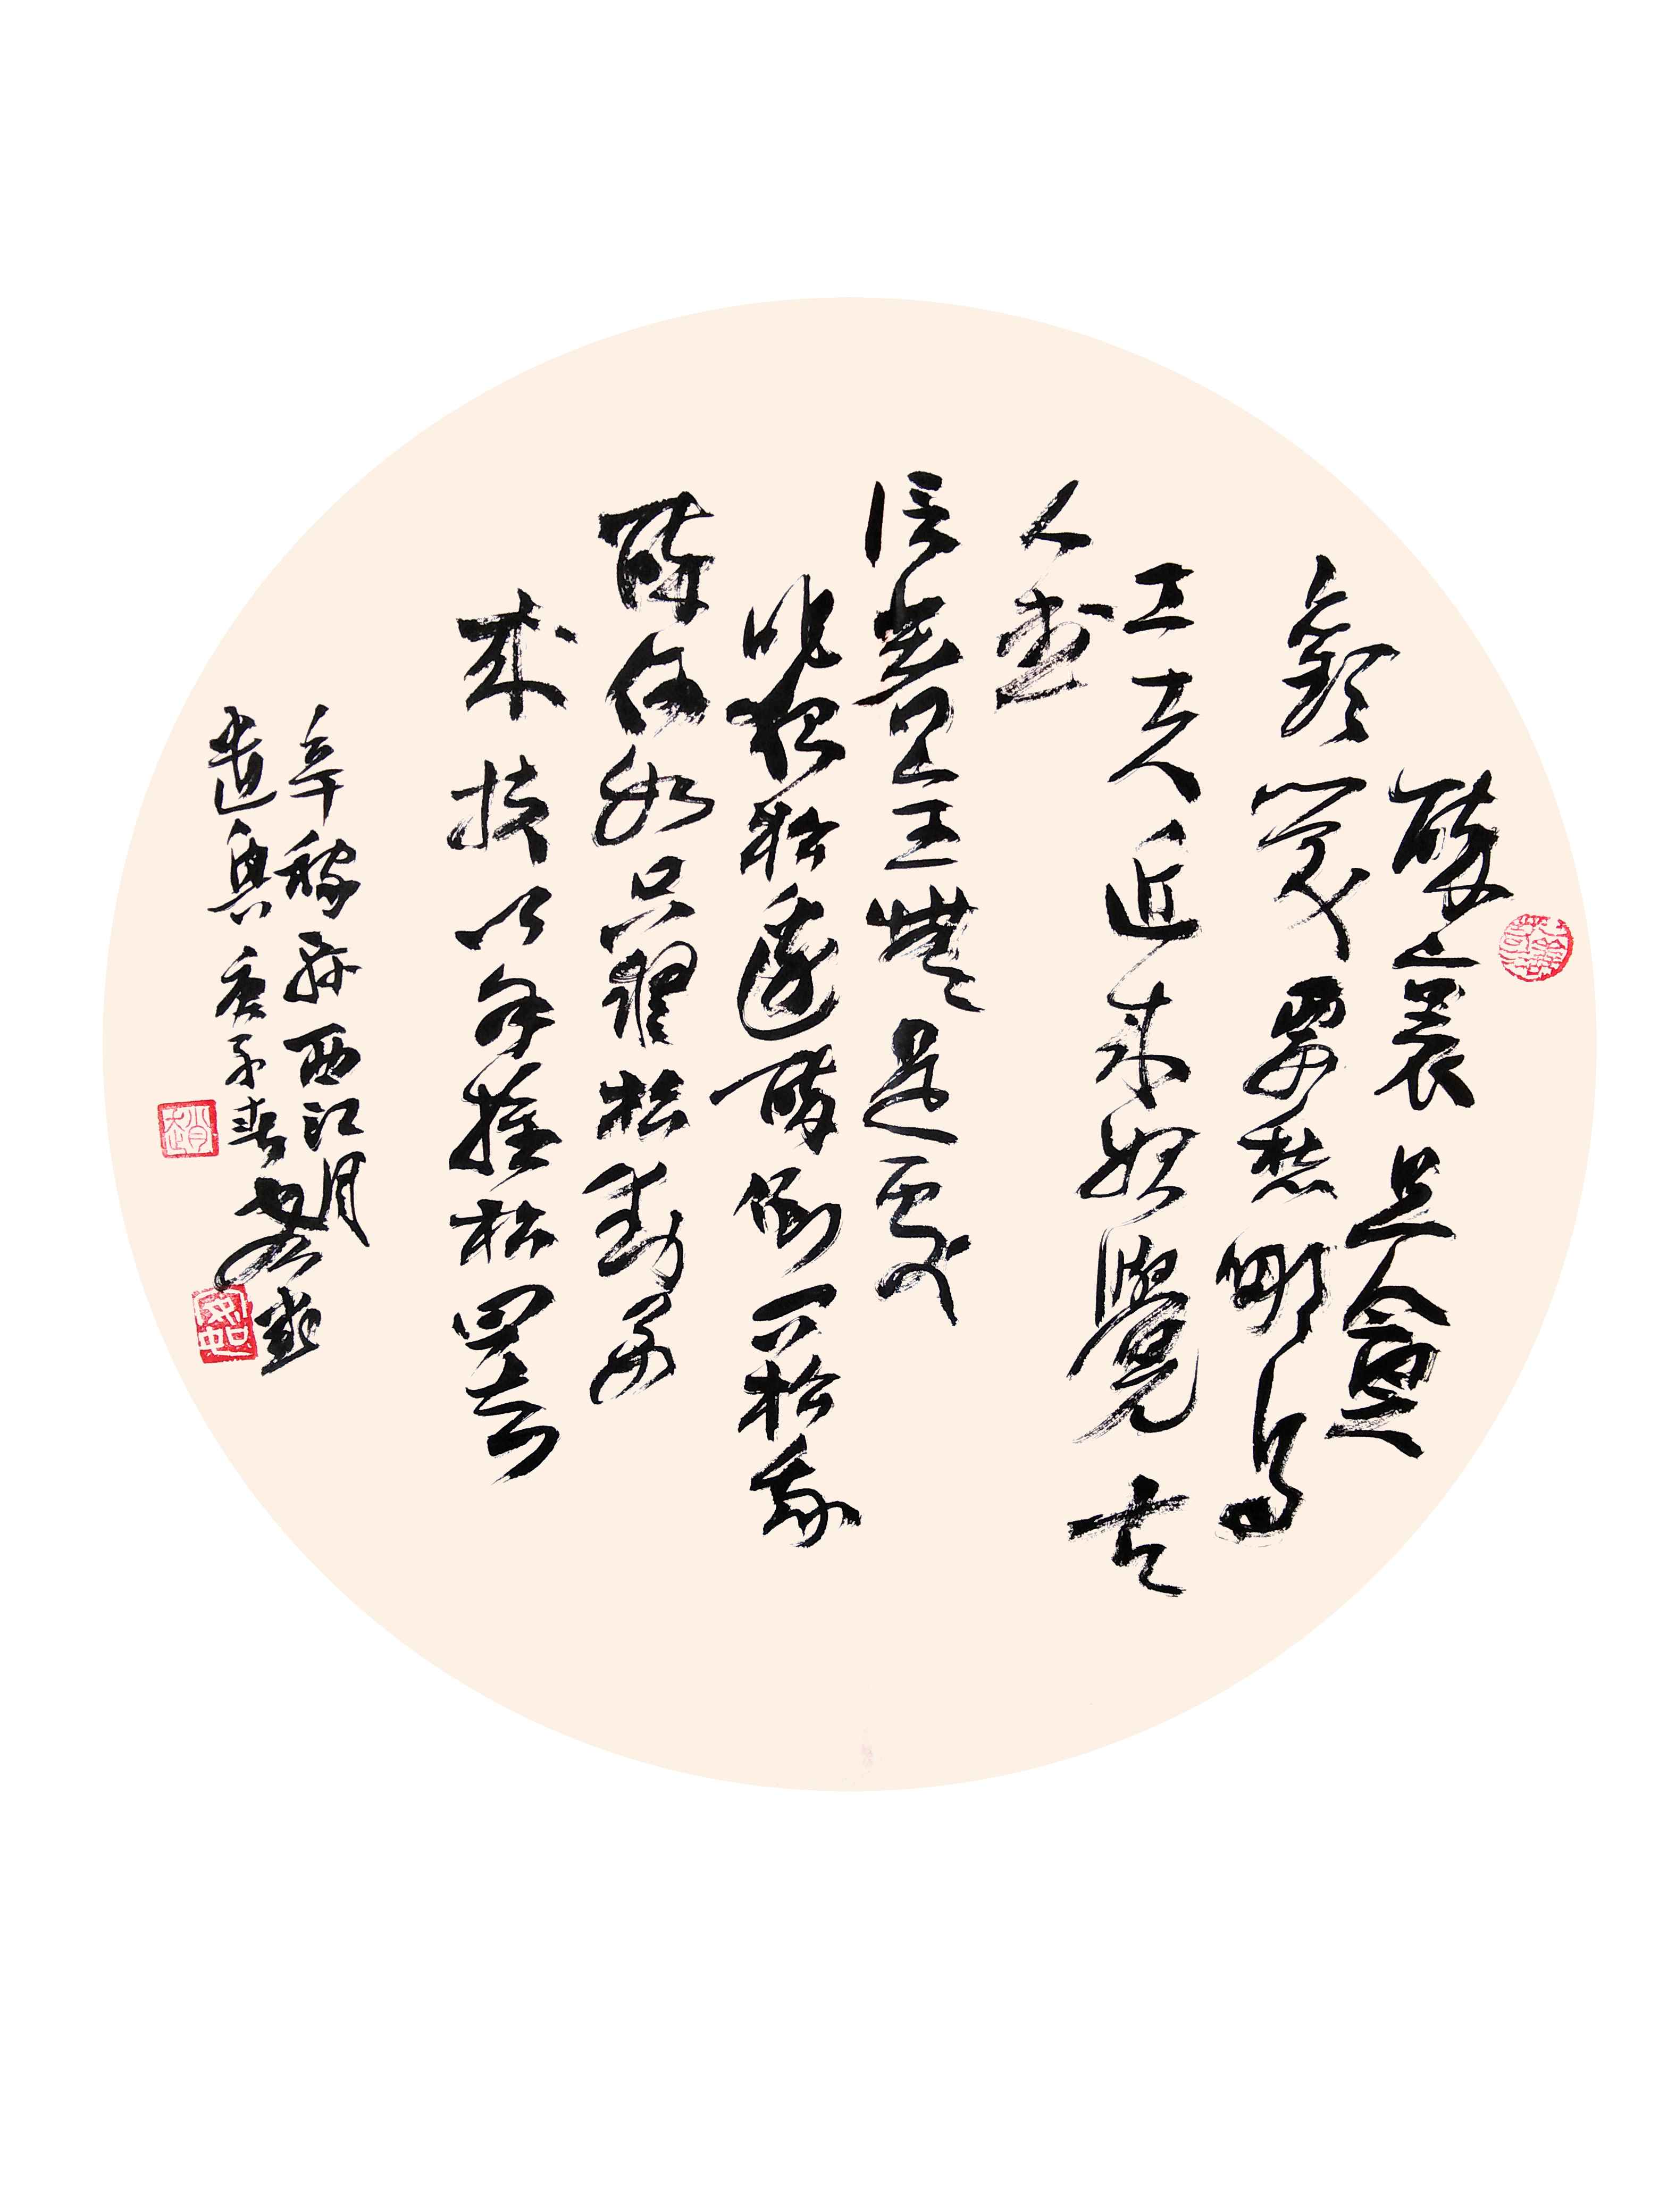 醉裏且貪
歡笑要愁那得
工夫近来始覺古
人書
信著全無是處
昨夜松邊醉倒问松我
醉何如只疑松動要
来扶以手推松曰去
辛稼軒西江月
遣興庚子春